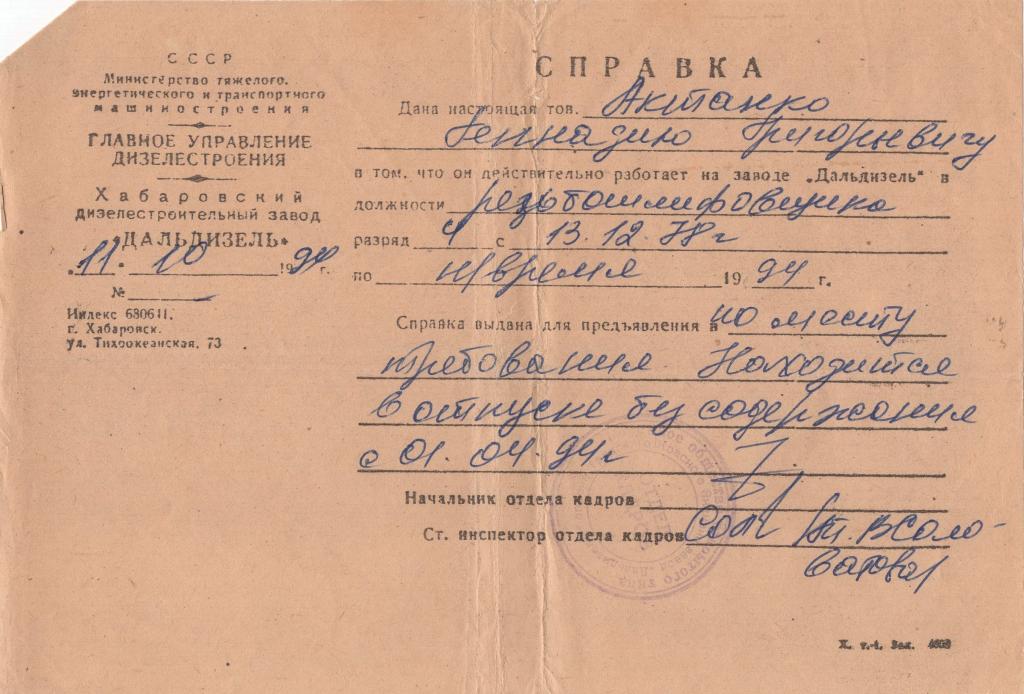 СССР
Министерство тяжелого,
энергетического и транспортного
машиностроения
ГЛАВНОЕ УПРАВЛЕНИЕ
ДИЗЕЛЕСТРОЕНИЯ
Хабаровский
дизелестроительный завод
"ДАЛЬДИЗЕЛЬ"
„11. 10 1994 г.
№
Индекс 680611,
г. Хабаровск.
ул. Тихоокеанская, 73
СПРАВКА
Дана настоящая тов. Актанко
Геннадию Григорьевичу
в том, что он действительно работает на заводе „Дальдизель" в
должности резьбошлифовщика
разряд 4 с 13.12.78 г
по н/время 1994 г.
Справка выдана для предъявления в по месту
требования Находится
в отпуске без содержания
с 01.04.94 г
Начальник отдела кадров
Ст. инспектор отдела кадров Сол /Т.В Соло-
ватова/
Х. т-1. Зак.